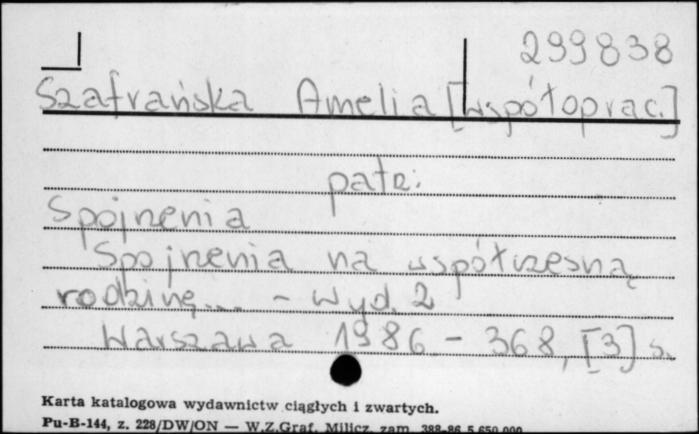 299838
Szafrańska Amelia [współoprac.]
patrz:
Spojrzenia
Spojrzenia na współczesną
rodzinę... - Wyd. 2
Warszawa 1986 - 368, [3] s.
Karta katalogowa wydawnictw ciągłych i zwartych.
Pu-B-144, z. 228/DW/ON — W.Z.Graf. Milicz, zam. 388-86 5.650.000